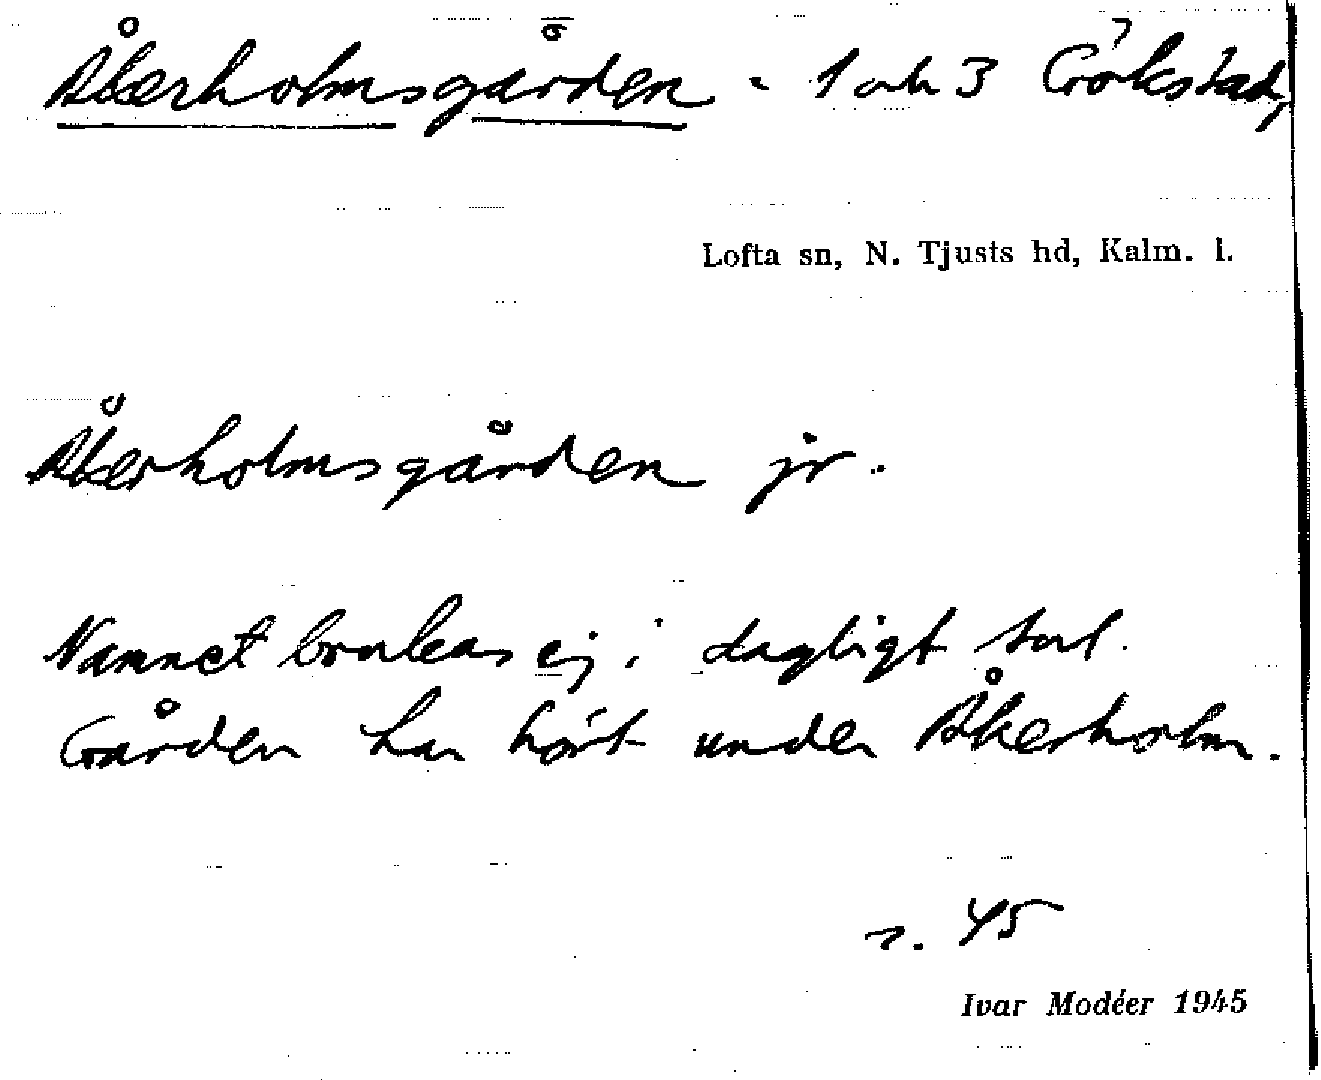 Åkerholmsgården = 1 och 3 Gökstad,
Lofta sn, N. Tjusts hd, Kalm. l.
Åkerholmsgården jr.
Namnet brukas ej i dagligt tal.
Gården har hört under Åkerholm.
s. 45
Ivar Modéer 1945